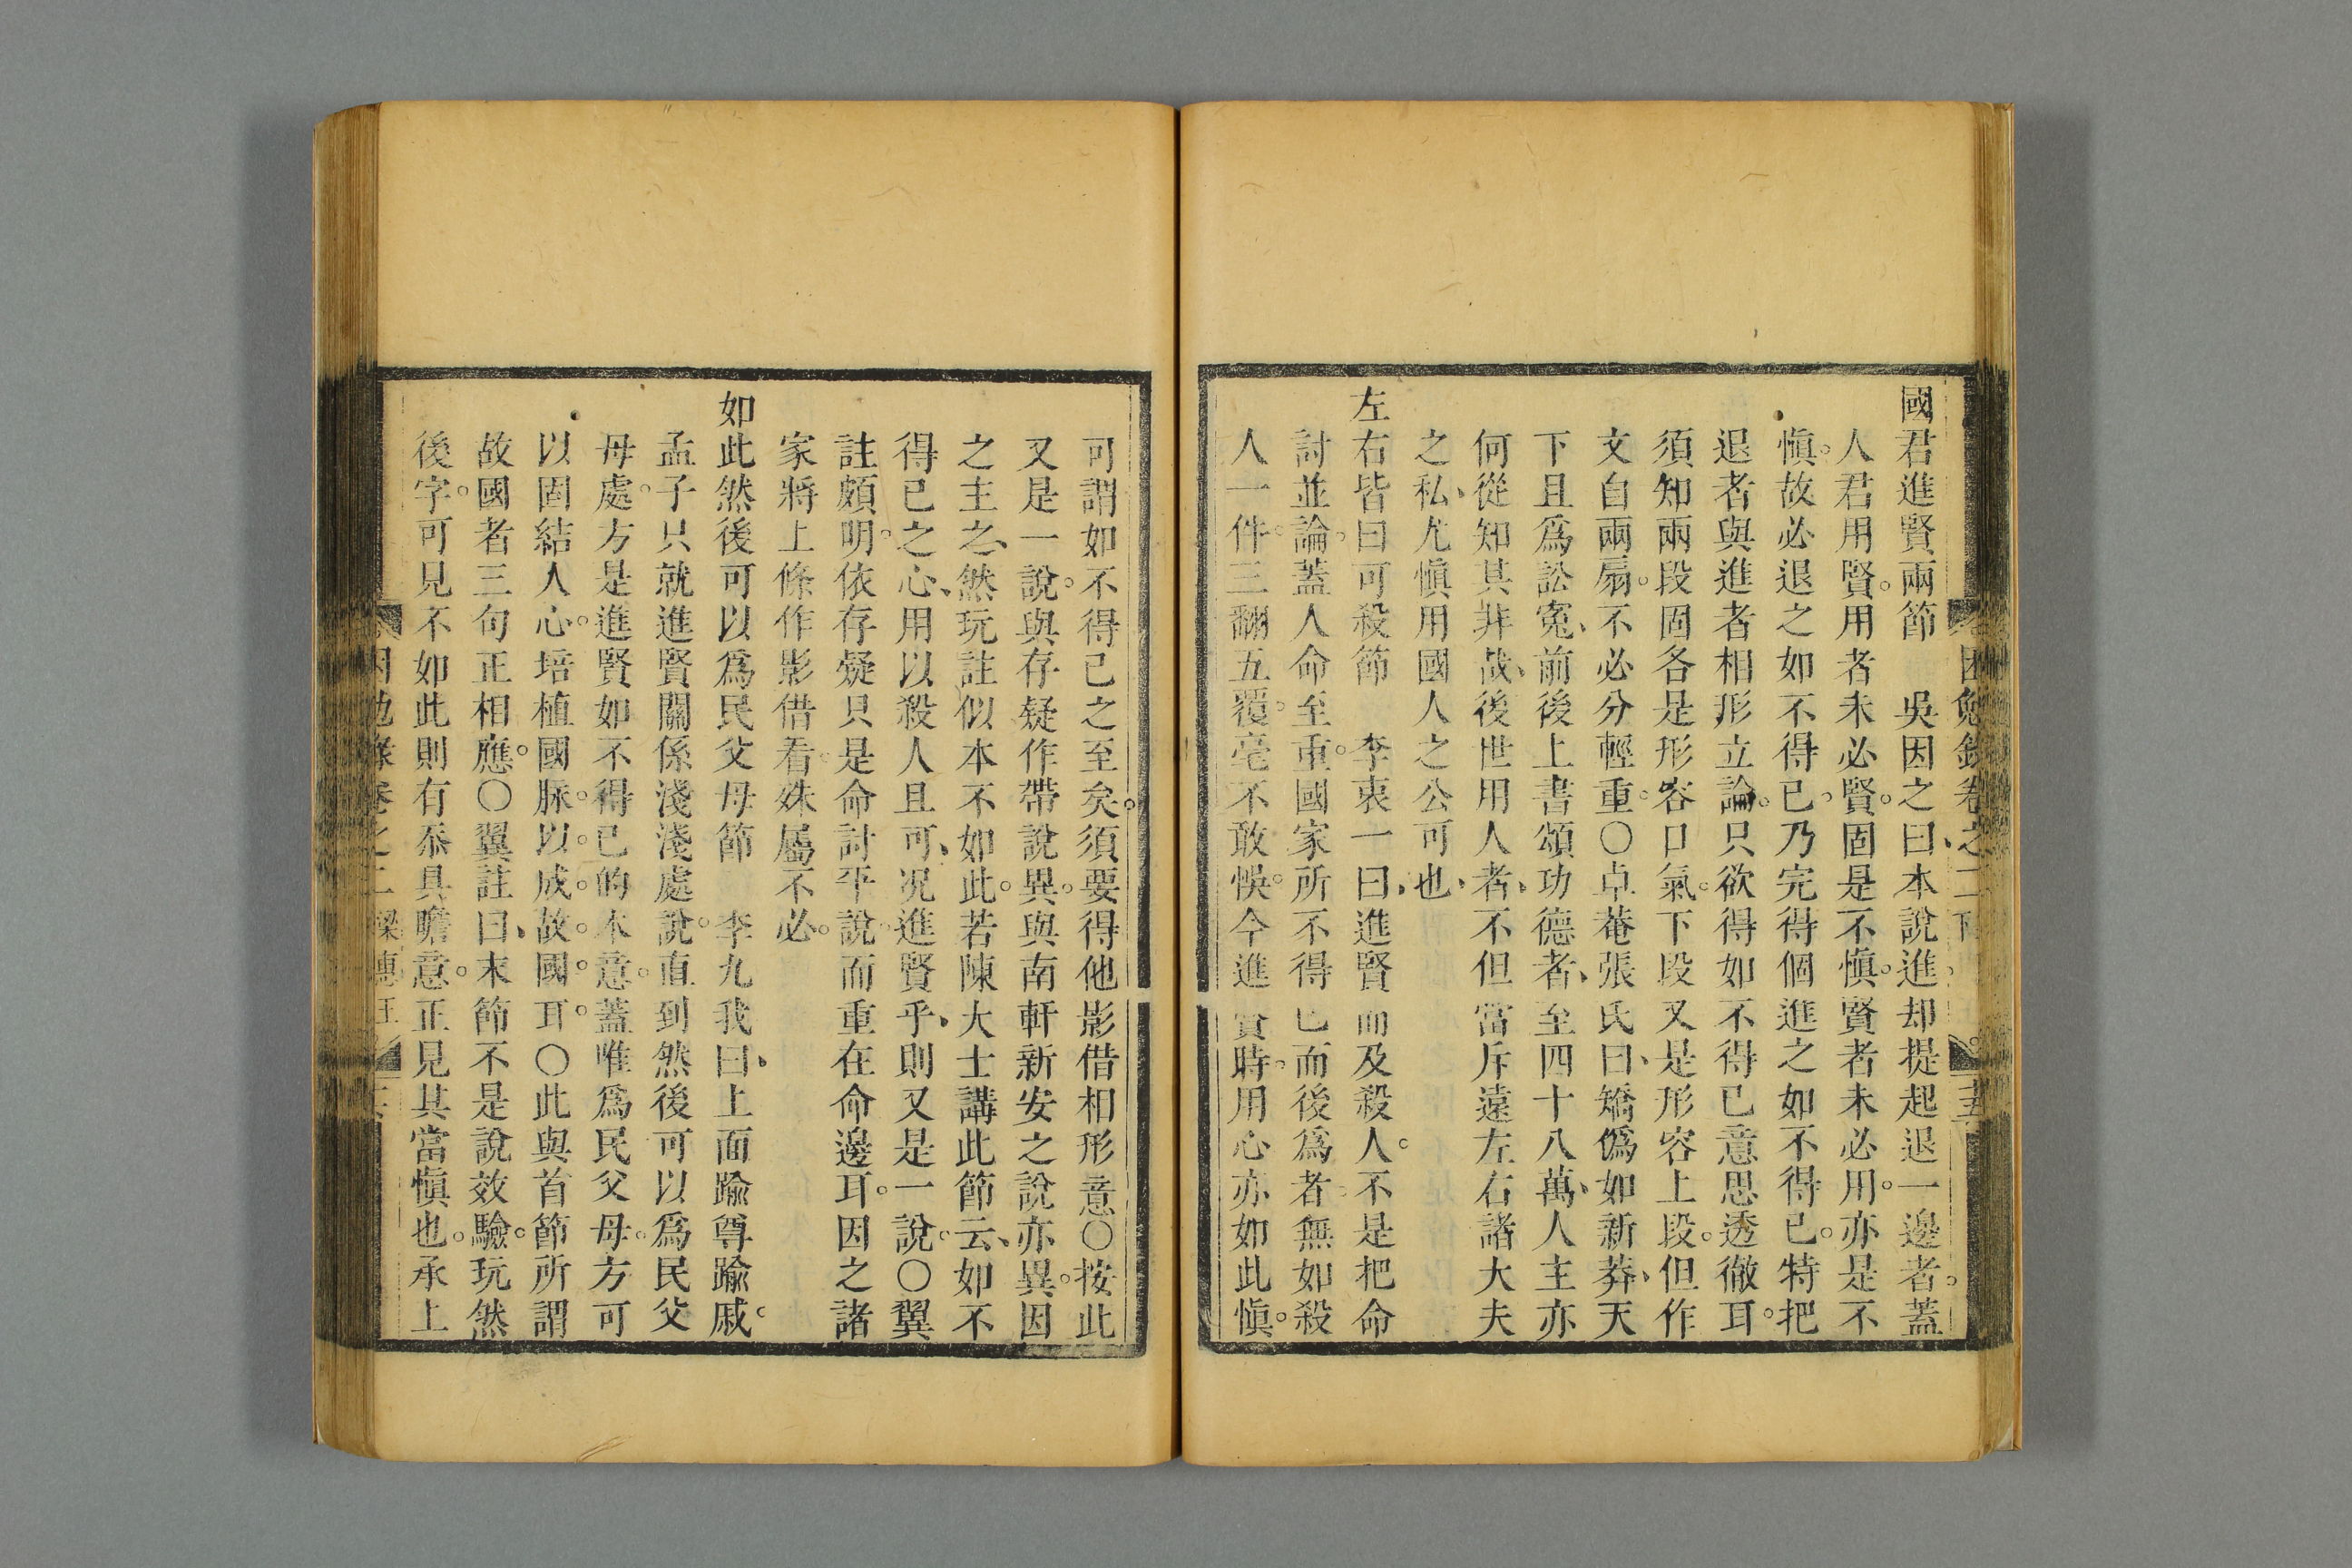 國君進賢兩節　吳因之曰、本說進却提起退一邊者。蓋
人君用賢。用者未必賢。固是不慎。賢者未必用。亦是不
慎。故必退之如不得已。乃完得個進之如不得已。特把
退者與進者相形立論。只欲得如不得已意思透徹耳。
須知兩段固各是形容口氣。下段又是形容上段。但作
文自兩扇。不必分輕重。〇卓菴張氏曰、矯僞如新莽、天
下且爲訟寃、前後上書頌功德者、至四十八萬、人主亦
何從知其非哉、後世用人者、不但當斥遠左右諸大夫
之私、尤慎用國人之公可也、
左右皆曰可殺節　李衷一曰、進賢而及殺人。不是把命
討並論。蓋人命至重。國家所不得已而後爲者。無如殺
人一件。三翻五覆。毫不敢悞。今進賢時。用心亦如此慎。
可謂如不得已之至矣。須要得他影借相形意〇按此
又是一說。與存疑作帶說異。與南軒新安之說亦異。因
之主之、然玩註似本不如此。若陳大士講此節云、如不
得已之心、用以殺人且可、况進賢乎、則又是一說。〇翼
註頗明。依存疑只是命討平說。而重在命邊耳。因之諸
家將上條作影借看。殊屬不必。
如此然後可以爲民父母節　李九我曰、上面踰尊踰戚。
孟子只就進賢關係淺淺處說。直到然後可以爲民父
母處。方是進賢如不得已的本意。蓋唯爲民父母。方可
以固結人心。培植國脉。以成故國耳。〇此與首節所謂
故國者三句正相應。〇翼註曰、末節不是說效驗。玩然
後字。可見不如此則有忝具瞻意。正見其當慎也。承上